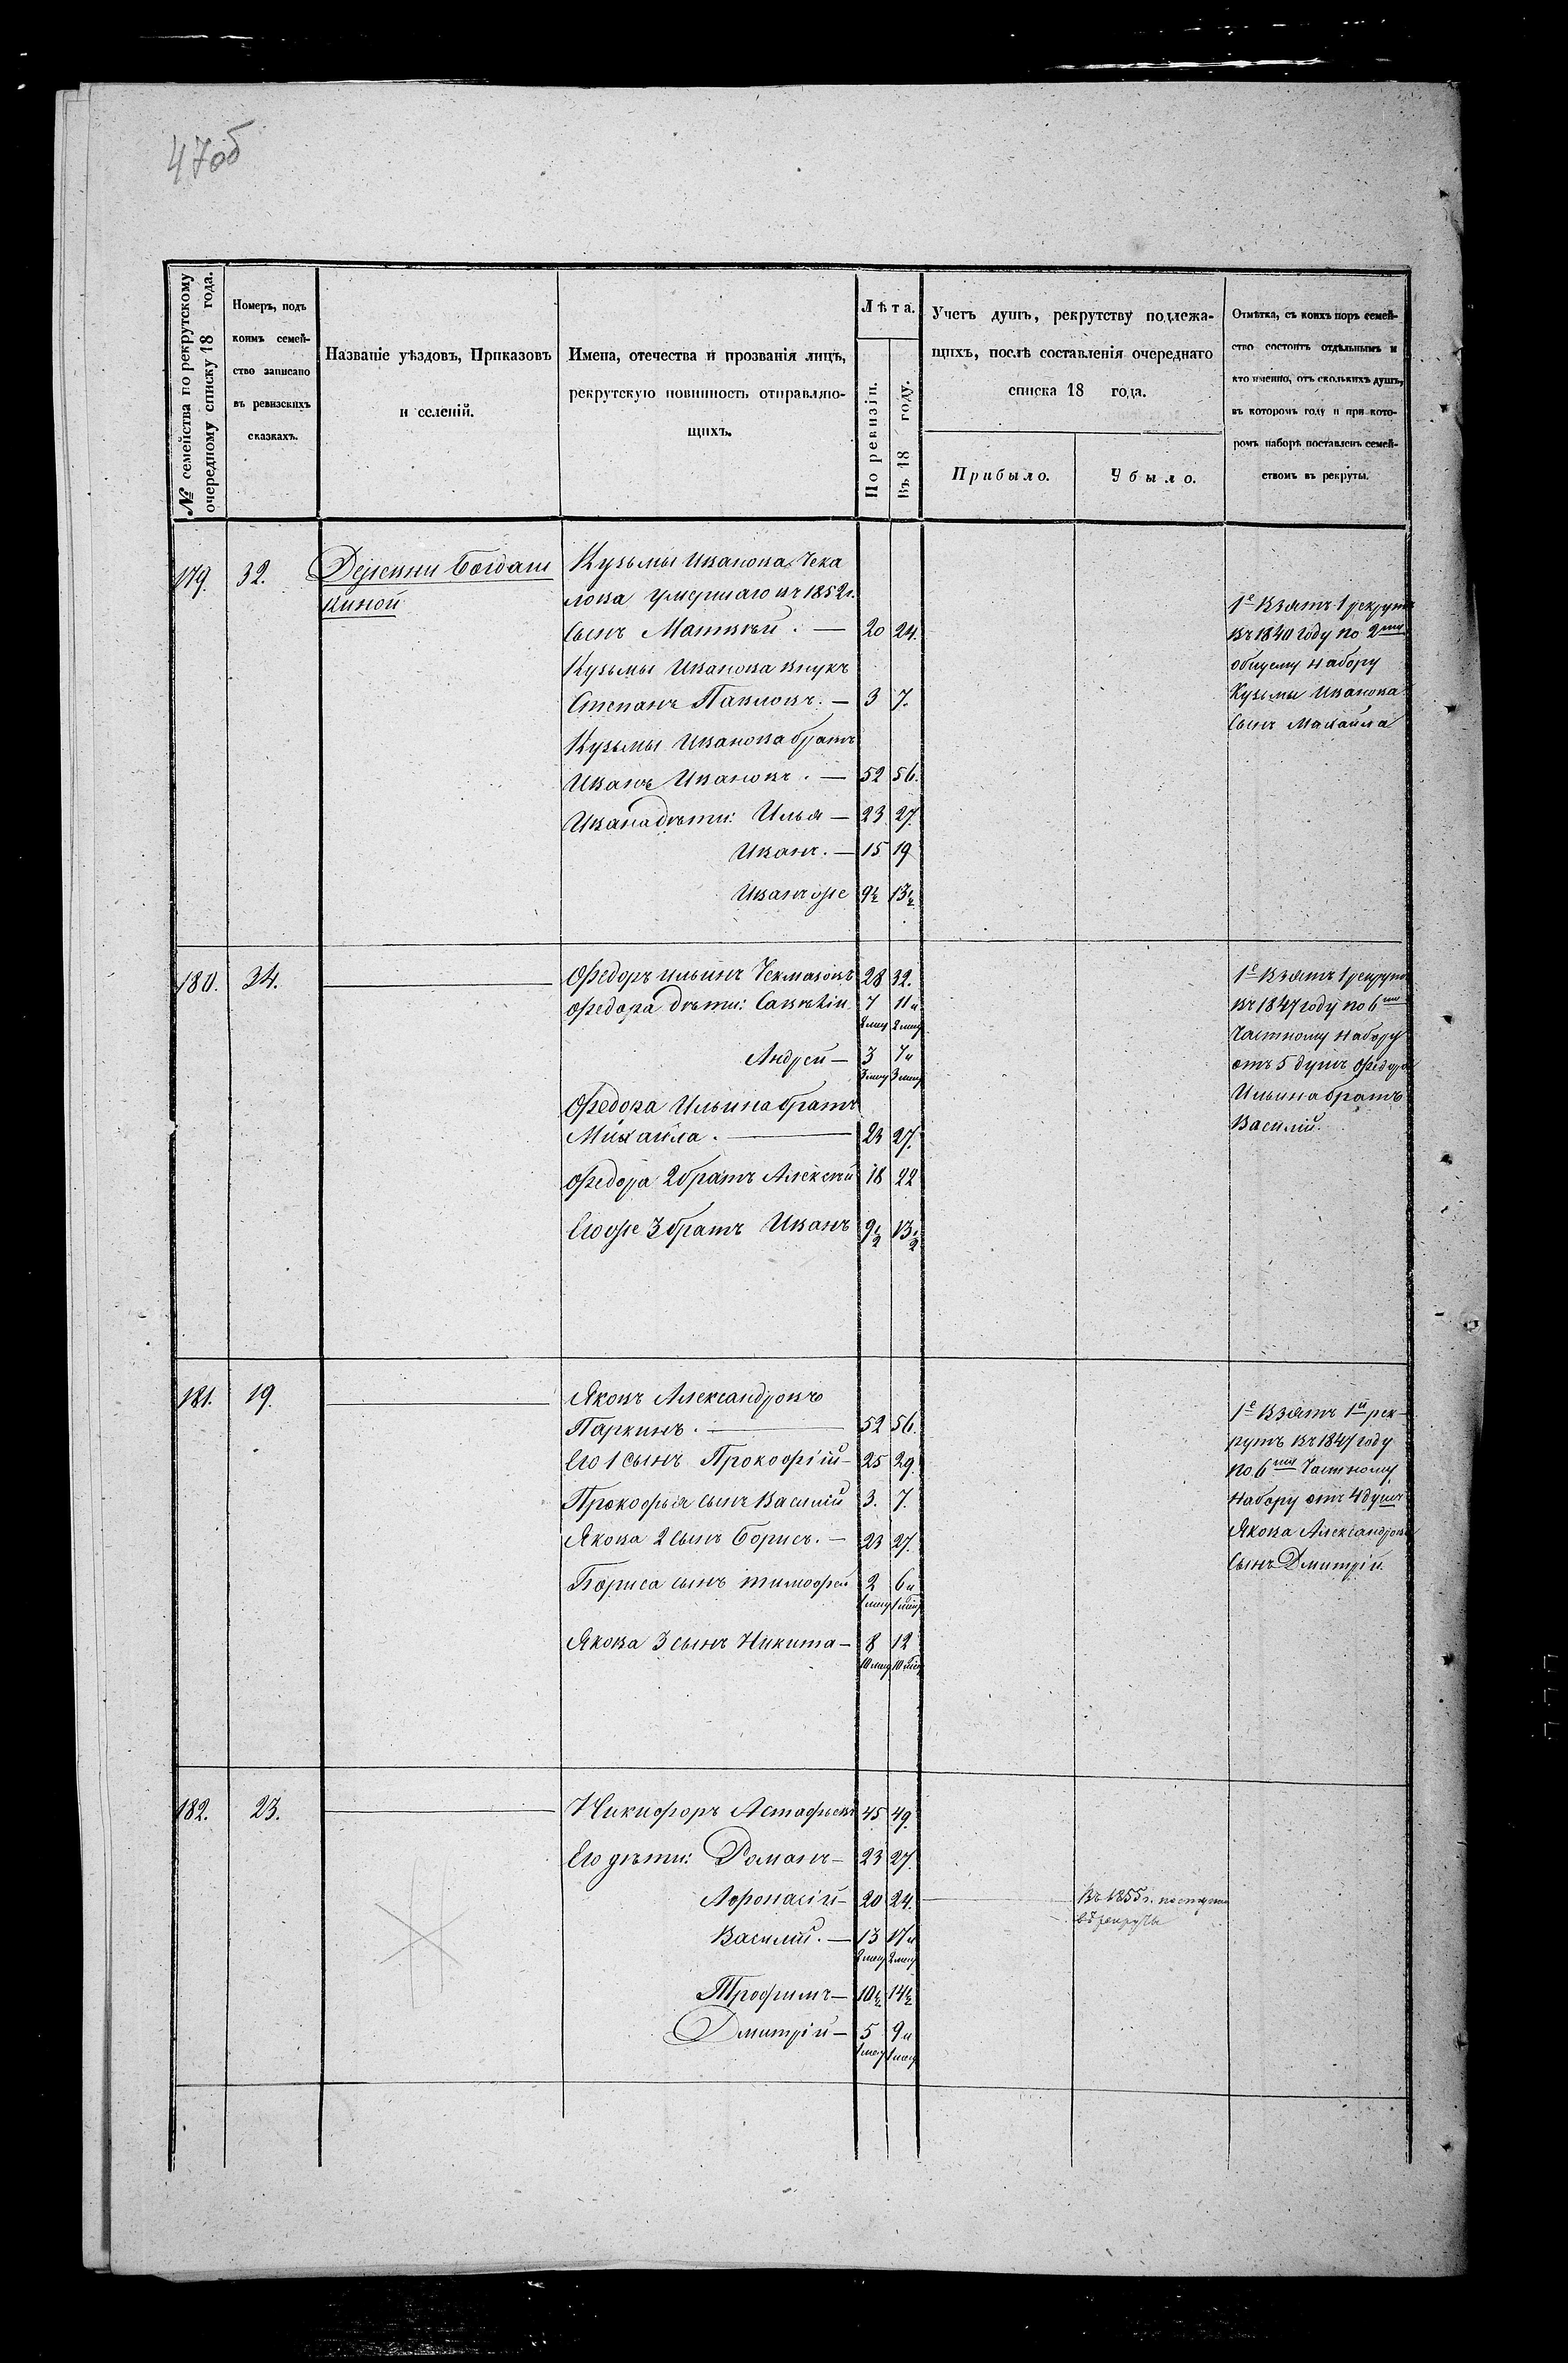 47об
№ семейства по рекрутскому
очередному списку 18 года.
Номеръ, подъ
коимъ семей-
ство записано
въ ревизскихъ
сказкахъ.
Названіе уѣздовъ, Приказовъ
и селеній.
Имена, отечества и прозванія лицъ,
рекрутскую повинность отправляю-
щихъ.
Лѣта.
По ревизіи.
Въ 18 году.
Учетъ душъ, рекрутству подлежа-
щихъ, послѣ составленія очереднаго
списка 18 года.
Прибыло.
Убыло.
Отмѣтка, съ коихъ поръ семей-
ство состоитъ отдѣльнымъ и
кто именно, отъ сколькихъ душъ,
въ которомъ году и при кото-
ромъ наборѣ поставленъ семей-
ствомъ въ рекруты.
179. 32. Деревни Богдаш
киной
Кузьмы Иванова Чека
лова умершаго въ 1852 г.
сынъ Матвѣй. — 20 24.
Кузьмы Иванова внукъ
Степанъ Павловъ. — 3 7.
Кузьмы Иванова братъ
Иванъ Ивановъ. — 52 56.
Ивана дѣти: Илья — 23 27.
Иванъ. — 15 19
Иванъ же 9½ 13½
1е Взятъ 1 рекрутъ
въ 1840 году по 2му
общему набору
Кузьмы Иванова
сынъ Михайла
180. 34. Федоръ Ильинъ Чекмазовъ 28 32.
Федора дѣти: Савелій 7 11 и
2 мец 2 мец
Андрей — 3 7 и
3 мец 3 мец
Федора Ильина братъ
Михайла. — 23 27.
Федора 2 братъ Алексѣй 18 22
Его же 3 братъ Иванъ 9½ 13½
1е Взятъ 1 рекрутъ
въ 1847 году по 6му
Частному набору
отъ 5 душъ Федора
Ильина братъ
Василій.
181. 19. Яковъ Александровъ
Паркинъ. — 52 56.
Его 1 сынъ Прокофій — 25 29.
Прокофья сынъ Василій 3. 7.
Якова 2 сынъ Борисъ. — 23 27.
Бориса сынъ Тимофей 2 6 и
1 мец 1 мец
Якова 3 сынъ Никита — 8 12
10 мец 10 мец
1е Взятъ 1й рек-
рутъ въ 1847 году
по 6му Частному
набору отъ 4 душъ
Якова Александрова
сынъ Дмитрій.
182. 23. Никифоръ Астафьевъ 45 49.
Его дѣти: Романъ — 23 27.
Афонасій — 20 24.
Въ 1855 г. поступил
въ рекруты
Василій. — 13 17 и
2 мец 2 мец
Трофимъ — 10½ 14½
Дмитрій — 5 9 и
1 мец 1 мец